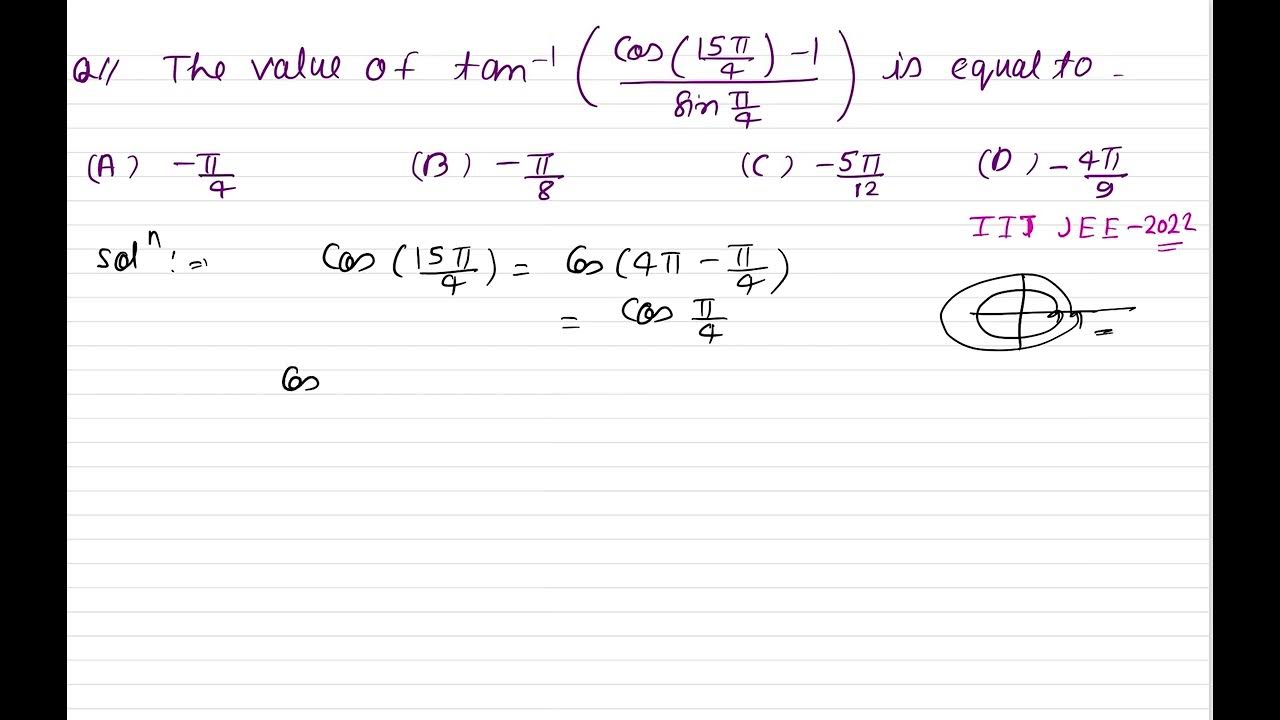 Q1// The value of tan⁻¹ ( (cos(15π/4) - 1) / sin π/4 ) is equal to -
(A) -π/4 (B) -π/8 (C) -5π/12 (D) -4π/9
IIT JEE-2022
Solⁿ := cos (15π/4) = Cos (4π - π/4)
= Cos π/4
Cos